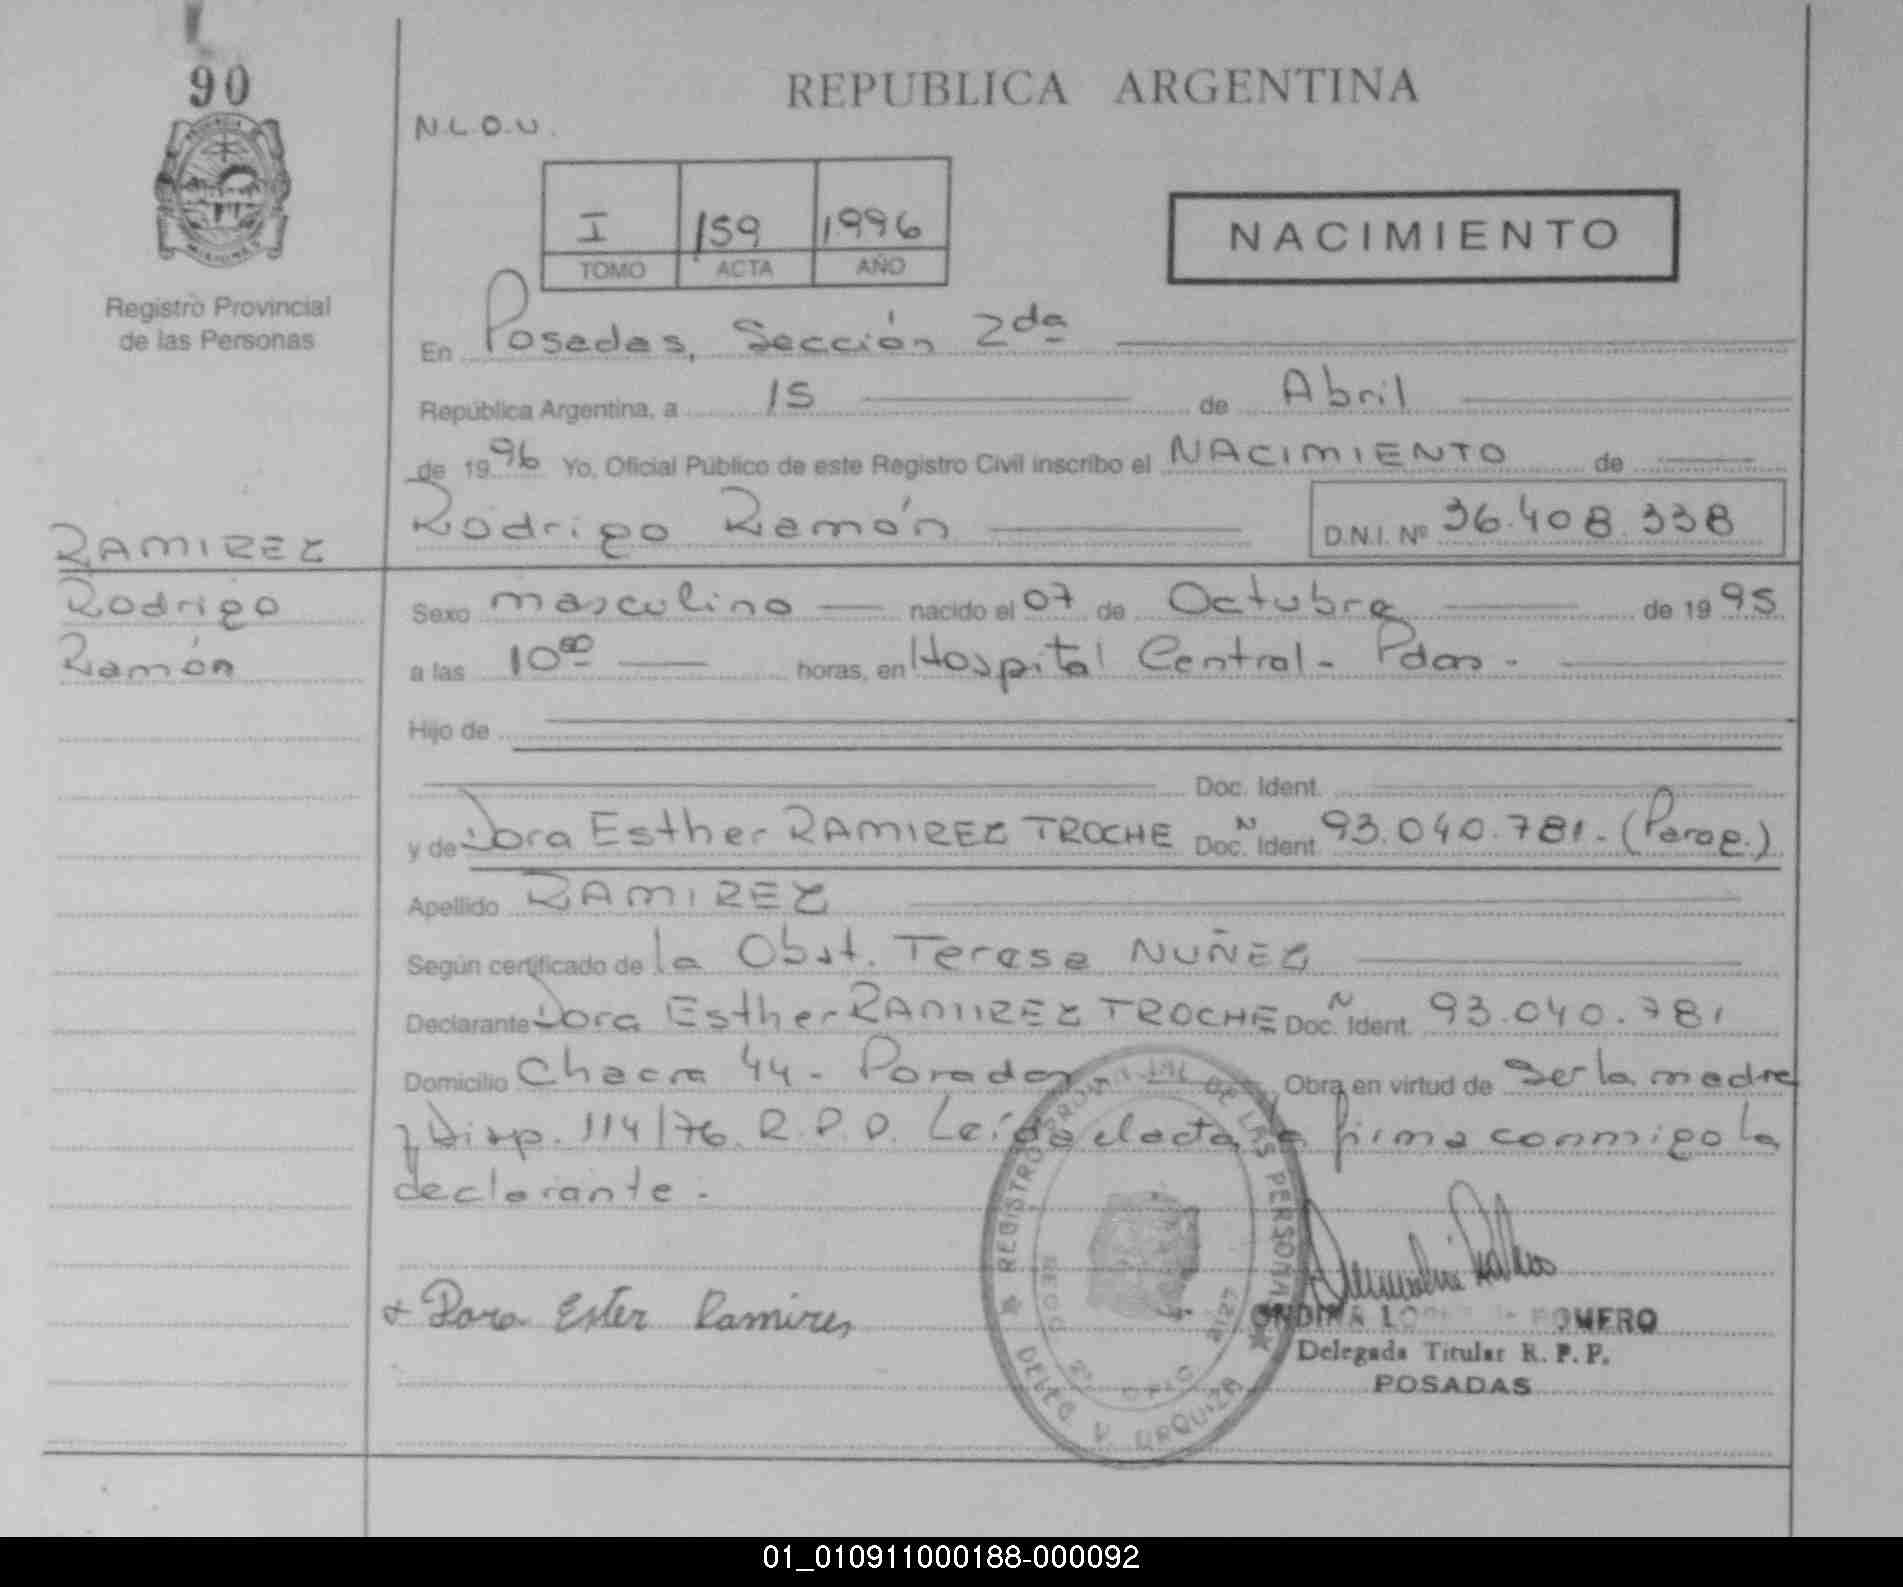 90
REPUBLICA ARGENTINA
N.L.O.U.
I 159 1996
TOMO ACTA AÑO
NACIMIENTO
Registro Provincial
de las Personas
En Posadas, Sección 2da
República Argentina, a 15 de Abril
de 1996 Yo, Oficial Público de este Registro Civil inscribo el NACIMIENTO de
Rodrigo Ramón D.N.I. Nº 36.408.338
RAMIREZ
Rodrigo
Ramón
Sexo masculino nacido el 07 de Octubre de 1995
a las 10 00 horas, en Hospital Central - Pdas -
Hijo de
Doc. Ident.
y de Dora Esther RAMIREZ TROCHE Doc. N Ident. 93.040.781 - (Parag.)
Apellido RAMIREZ
Según certificado de la Obst. Teresa NUÑEZ
Declarante Dora Esther RAMIREZ TROCHE Doc. N Ident. 93.040.781
Domicilio Chacra 44 - Posadas Obra en virtud de ser la madre
y Disp. 114/76. R.P.P. Leída el acta, la firma conmigo la
declarante.
Dora Ester Ramires
REGISTRO PROVINCIAL DE LAS PERSONAS
DELEG. URQUIZA
ROMERO
Delegada Titular R. P. P.
POSADAS
01_010911000188-000092